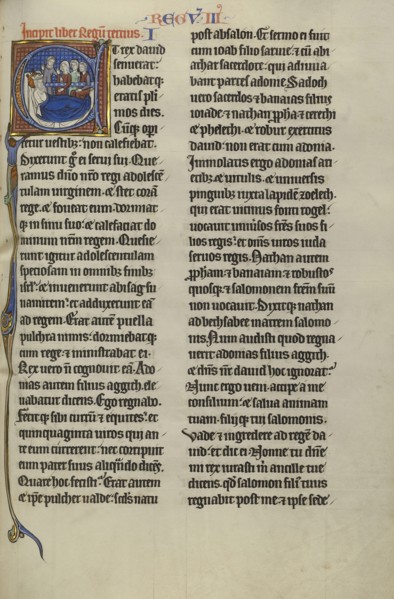 REGV III
Incipit liber Regū tercius. I
Et rex david
senuerat:
habebatq;
etatis pli-
mos dies.
Cūq; ope-
riretur vestibz: non calefiebat.
Dixerunt g̃ ei servi sui. Que-
ramus dño nr̃o regi adolescē-
tulam virginem. et stet corā
rege. et foveat eum. dormiat
q; in sinu suo: et calefaciat do-
minum nr̃m regem. Quesie-
runt igitur adolescentulam
speciosam in omnibz finibz
isrl. et invenerunt abisag su-
namitem: et adduxerunt eā
ad regem. Erat autē puella
pulchra nimis: dormiebatq;
cum rege. et ministrabat ei.
Rex vero nō cognovit eā. Ado-
nias autem filius aggith. ele-
vabatur dicens. Ego regnabo.
Fecitq; sibi currū et equites: et
quinquaginta viros qui an-
te eum currerent. nec corripuit
eum pater suus aliqñdo dicēs.
Quare hoc fecisti? Erat autem
et ip̃e pulcher valde: scd̃s natu
post absalon. Et sermo ei fuit
cum ioab filio sarvie. et cū abi-
athar sacerdote. qui adiuva-
bant partes adonie. Sadoch
vero sacerdos et banaias filius
ioiade. et nathan pp̃ha et cerethi
et phelethi. et robur exercitus
david: non erat cum adonia.
Immolatis ergo adonias ari-
etibz et vitulis. et universis
pinguibz iuxta lapidē zoelech.
qui erat vicinus fonti rogel:
vocavit uniṽsos fr̃es suos fi-
lios regis: et om̃s viros iuda
servos regis. Nathan autem
pp̃ham. et banaiam. et robustos
quosq; et salomonem fr̃em suū
non vocavit. Dixit q; nathan
ad bethsabee matrem salomo-
nis. Num audisti quod regna-
verit adonias filius aggith.
et dñs nr̃ david hoc ignorat?
Nunc ergo veni. accipe a me
consilium: et salva animam
tuam. filiiq; tui salomonis.
Vade et ingredere ad regē da-
vid: et dic ei. Nonne tu dñe
mi rex iurasti m̃ ancille tue
dicens. qd̃ salomon fili9 tuus
regnabit post me. et ipse sede-